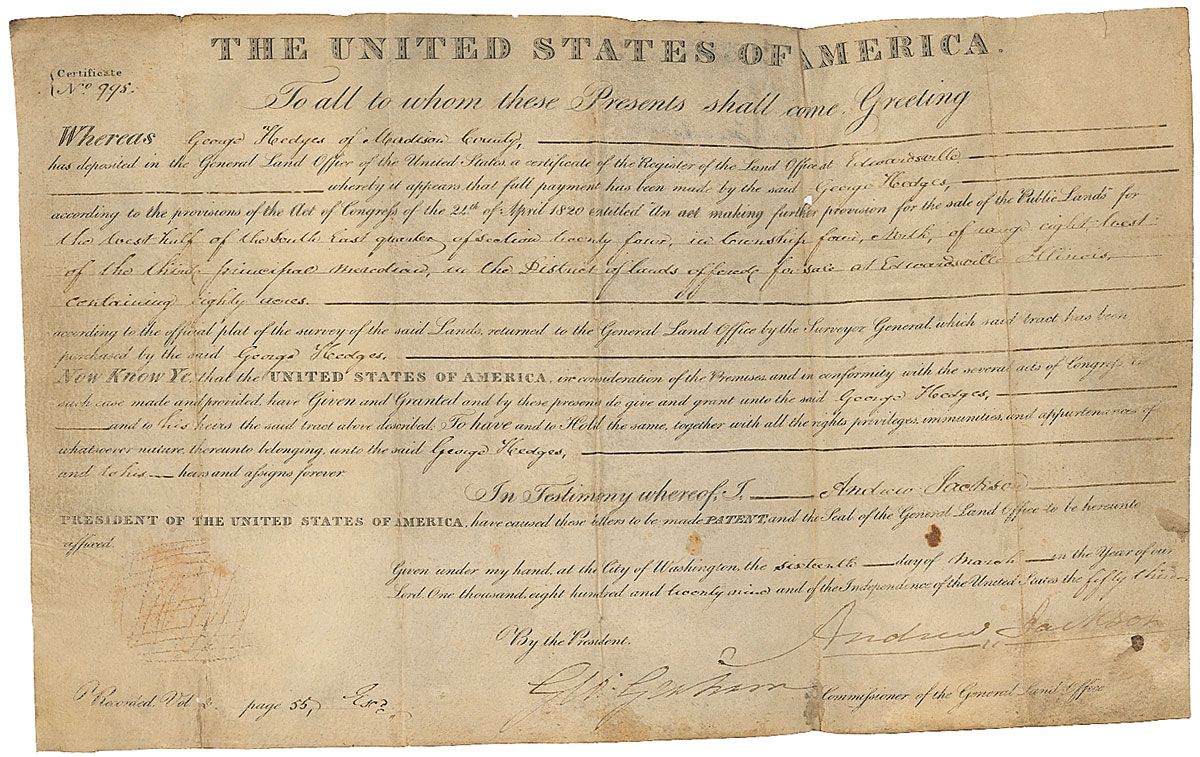 THE UNITED STATES OF AMERICA.
Certificate
No. 995.
To all to whom these Presents shall come, Greeting
Whereas George Hedges of Madison County,
has deposited in the General Land Office of the United States, a certificate of the Register of the Land Office at Edwardsville
whereby it appears that full payment has been made by the said George Hedges,
according to the provisions of the Act of Congress of the 24th of April 1820 entitled "An act making further provision for the sale of the Public Lands" for
the west half of the South East quarter of section twenty four, in township four, North, of range eight, West
of the third principal meredian, in the District of lands offered for sale at Edwardsville Illinois,
containing eighty acres.
according to the official plat of the survey of the said Lands, returned to the General Land Office by the Surveyor General, which said tract has been
purchased by the said George Hedges,
Now Know Ye, that the UNITED STATES OF AMERICA, in consideration of the Premises, and in conformity with the several acts of Congress in
such case made and provided, have Given and Granted and by these presents do give and grant unto the said George Hedges,
and to his heirs, the said tract above described: To have and to Hold the same, together with all the rights, privileges, immunities, and appurtenances of
whatsoever nature, thereunto belonging, unto the said George Hedges,
and to his heirs and assigns forever.
In Testimony whereof, I, Andrew Jackson
PRESIDENT OF THE UNITED STATES OF AMERICA, have caused these letters to be made PATENT, and the Seal of the General Land Office to be hereunto
affixed.
Given under my hand, at the City of Washington, the sixteenth day of March in the Year of our
Lord One thousand, eight hundred and twenty nine and of the Independence of the United States the fifty third
By the President.
Andrew Jackson
Geo: Graham Commissioner of the General Land Office
Recorded, Vol page 55,